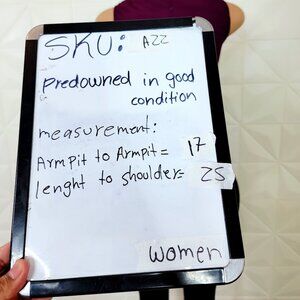 SKU: A22
Predowned in good
condition
measurement:
Armpit to Armpit = 17
lenght to shoulder= 25
women